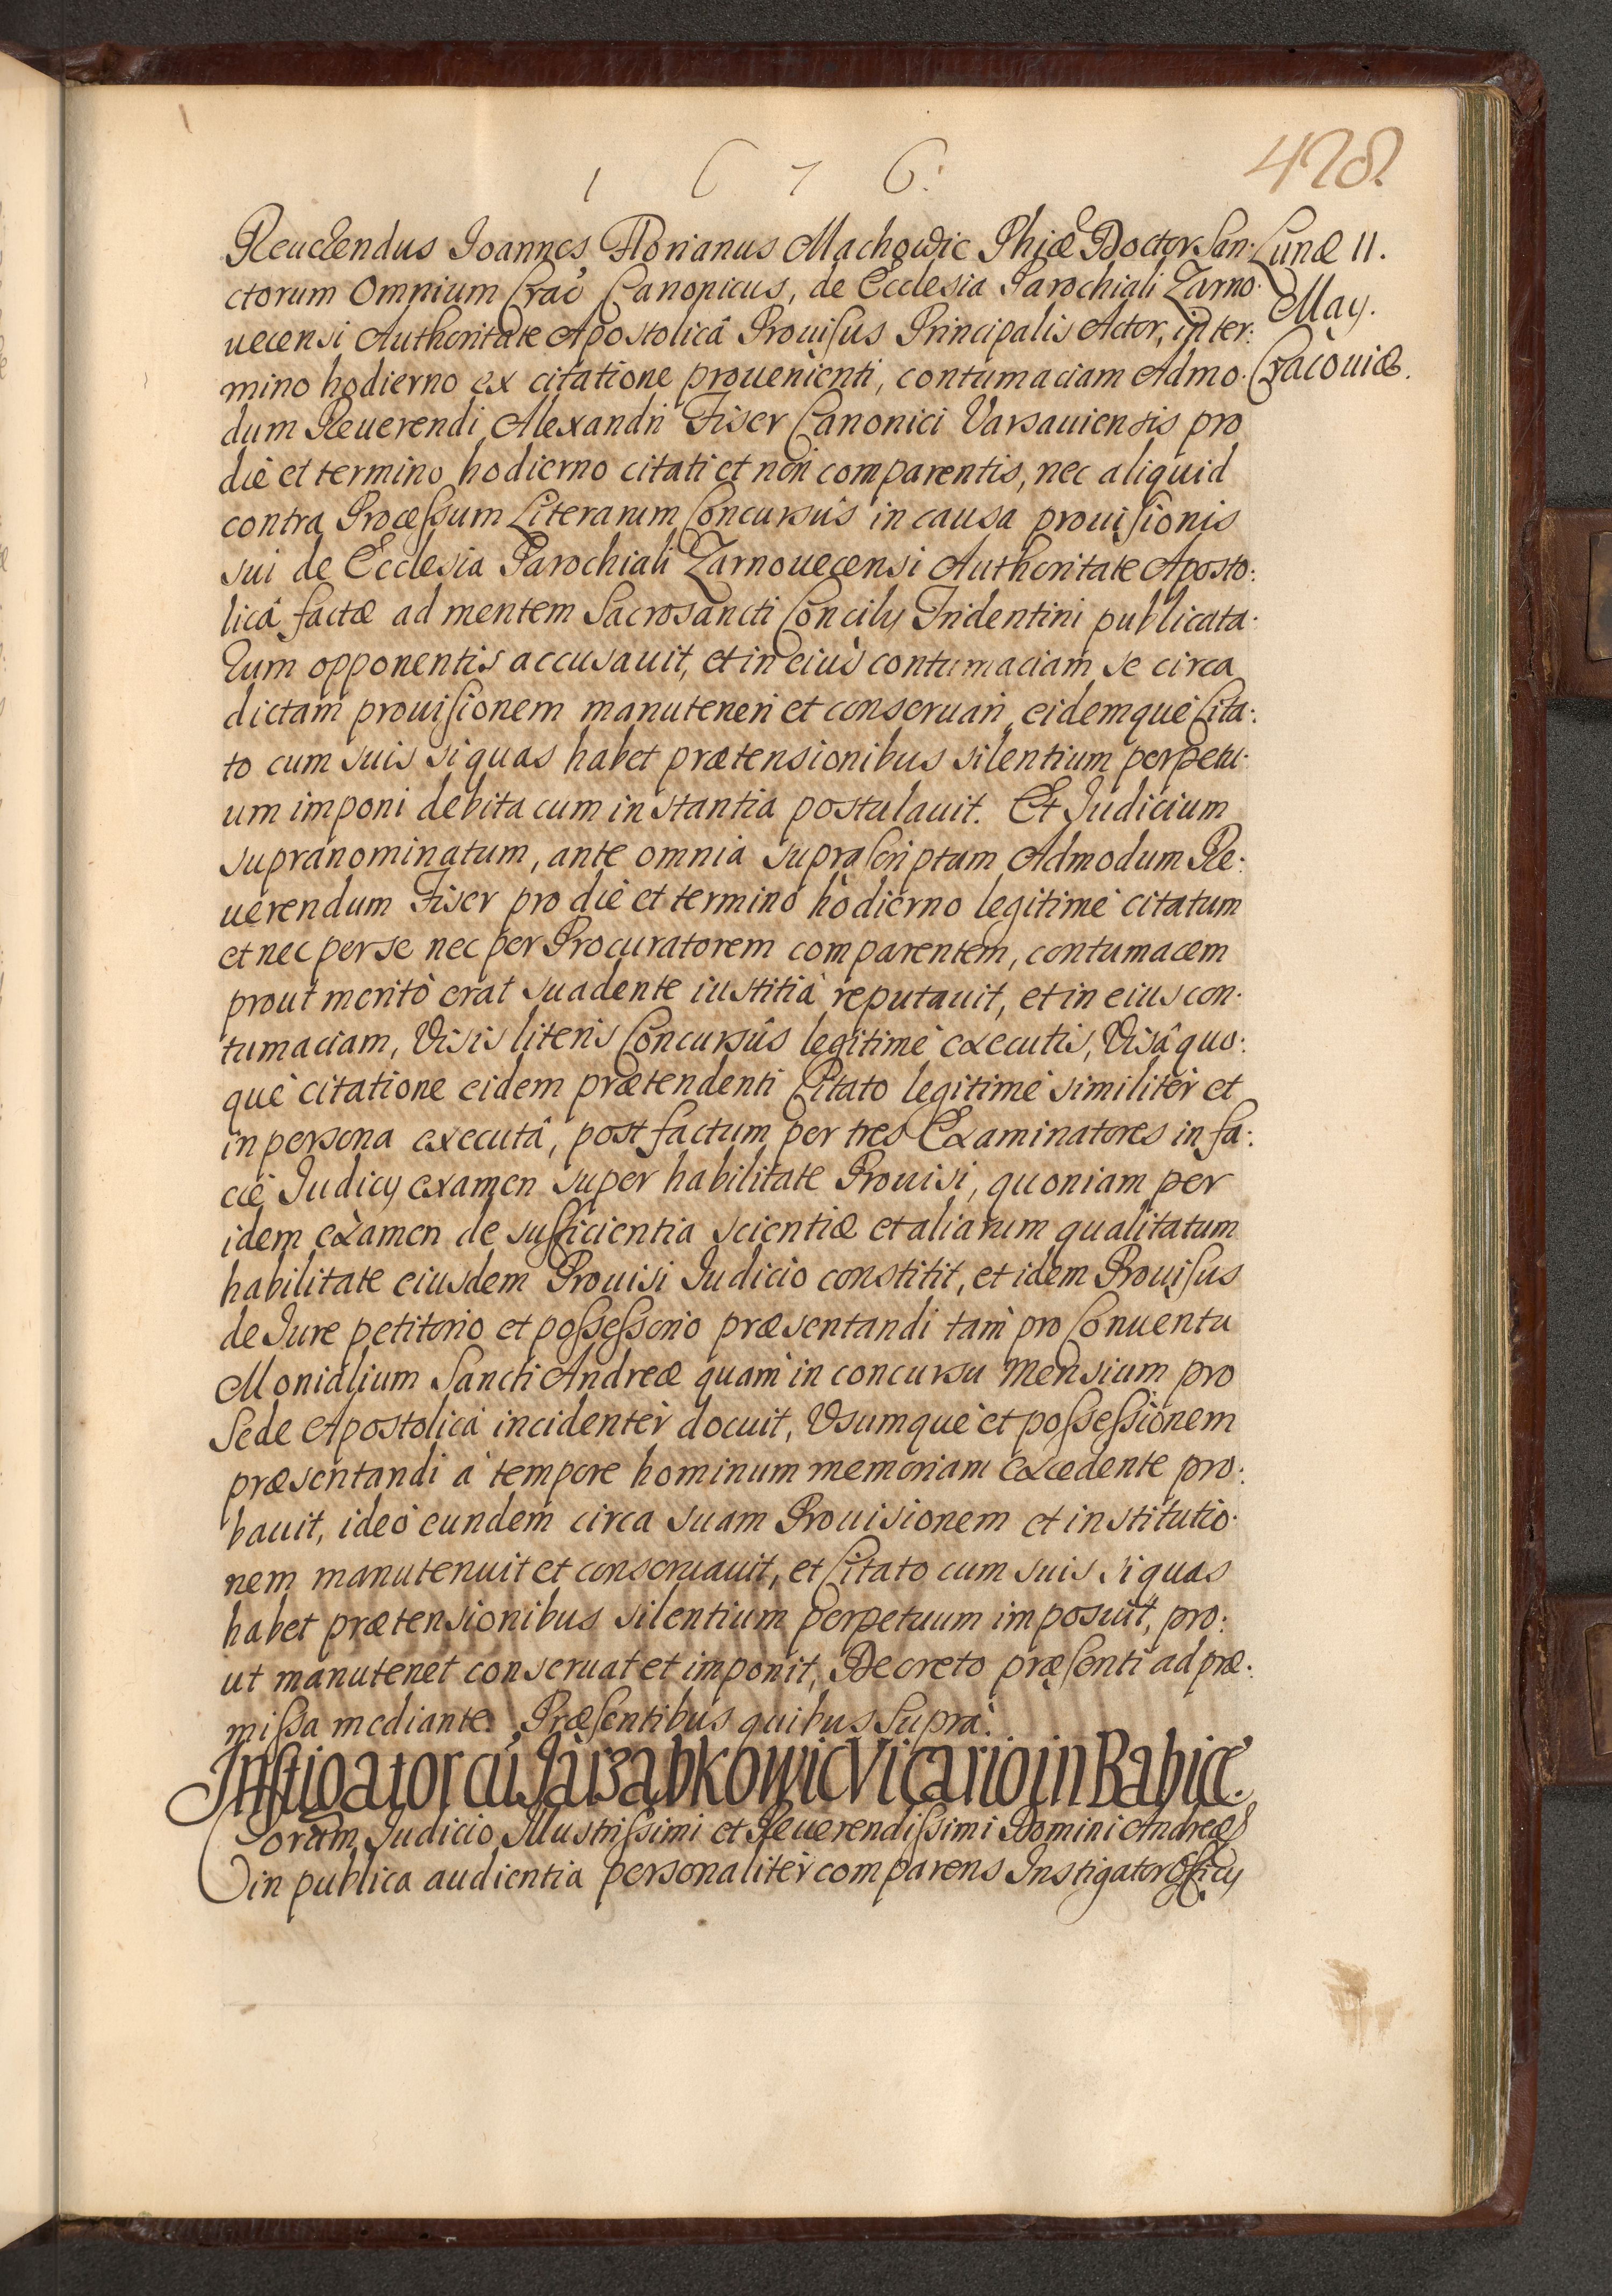 1 6 7 6.
428
Reuerendus Ioannes Florianus Machowic Phiæ Doctor San:
ctorum Omnium Crac Canonicus, de Ecclesia Parochiali Zarno:
uecensi Authoritate Apostolicâ Prouisus Principalis Actor, in ter:
mino hodierno ex citatione prouenienti, contumaciam Admo:
dum Reuerendi Alexandri Fiser Canonici Varsauiensis pro
die et termino hodierno citati et non comparentis, nec aliquid
contra Processum Literarum Concursûs in causa prouisionis
sui de Ecclesia Parochiali Zarnouecensi Authoritate Aposto:
licâ factæ ad mentem Sacrosancti Concilij Tridentini publicata:
rum opponentis accusauit, et in eius contumaciam se circa
dictam prouisionem manuteneri et conseruari, eidemque Cita:
to cum suis si quas habet prætensionibus silentium perpetu:
um imponi debita cum instantia postulauit. Et Judicium
supranominatum, ante omnia suprascriptum Admodum Re:
uerendum Fiser pro die et termino hodierno legitimè citatum
et nec per se nec per Procuratorem comparentem, contumacem
prout meritò erat suadente iustitiâ reputauit, et in eius con:
tumaciam, Visis literis Concursûs legitimè executis, Visâ quo:
què citatione eidem prætendenti Citato legitimè similiter et
in persona executâ, post factum per tres Examinatores in fa:
cie Judicij examen super habilitate Prouisi, quoniam per
idem examen de sufficientia scientiæ et aliarum qualitatum
habilitate eiusdem Prouisi Judicio constitit, et idem Prouisus
de Jure petitorio et possessorio præsentandi tam pro Conuentu
Monialium Sancti Andreæ quam in concursu Mensium pro
Sede Apostolica incidenter docuit, Vsumque et possessionem
præsentandi à tempore hominum memoriam excedente pro:
bauit, ideo eundem circa suam Prouisionem et institutio:
nem manutenuit et conseruauit, et Citato cum suis si quas
habet prætensionibus silentium perpetuum imposuit, pro:
ut manutenet conseruat et imponit, Decreto præsenti ad præ:
missa mediante. Præsentibus quibus Supra.
Instigator cu Jarzabkowic Vicario in Babice.
Coram Judicio Illustrissimi et Reuerendissimi Domini Andreæ
in publica audientia personaliter comparens Instigator Officij
Lunæ 11.
May.
Cracouiæ.